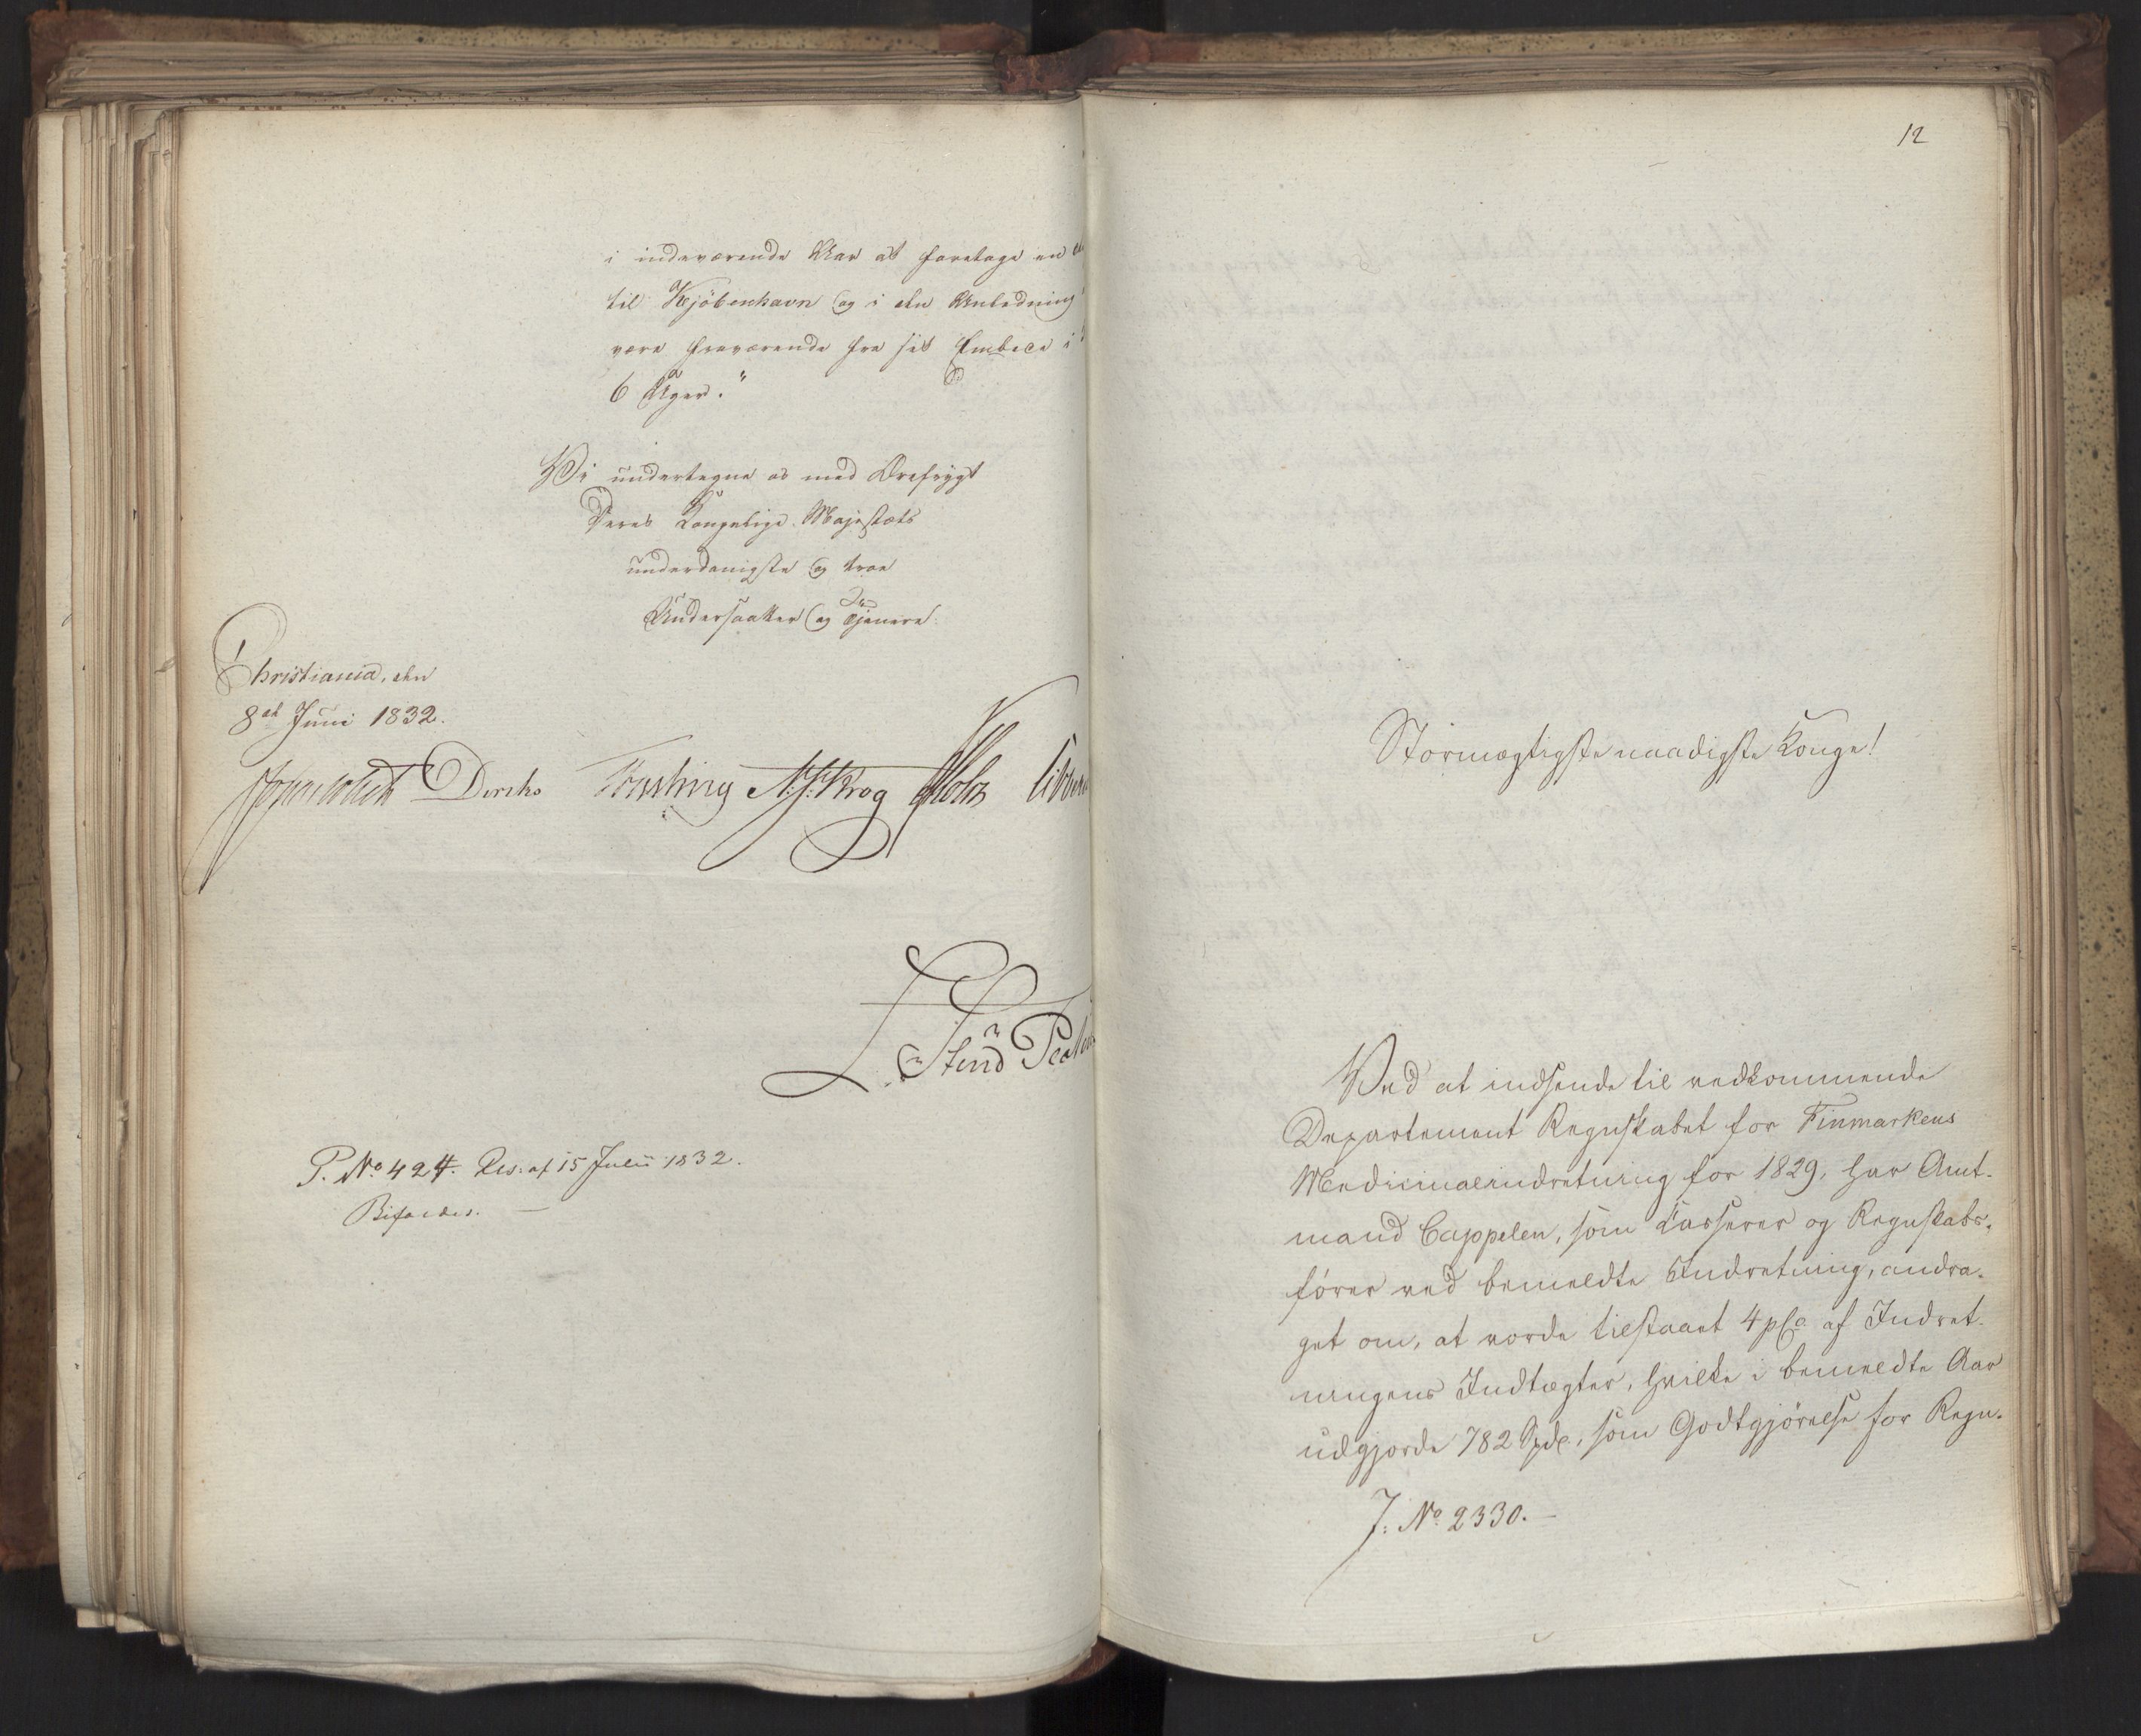 i indeværende Aar at foretage en
til Kjöbenhavn og i den Anledning
være fraværende fra sit Embede i
6 Uger."
Vi undertegne os med Ærefrygt
Deres Kongelige Majestæts
underdanigste og troe
Undersaatter og Tjenere
Christiania, den
8de Juni 1832.
Diriks Fasting N. J. Krog Holst
P. No 424. Res: af 15 Julii 1832.
Bifaldes. —
12
Stormægtigste naadigste Konge!
Ved at indsende til vedkommende
Departement Regnskabet for Finmarkens
Medicinalindretning for 1829, har Amt-
mand Cappelen, som Kasserer og Regnskabs-
fører ved bemeldte Indretning, andra-
get om, at vorde tilstaaet 4 pCo af Indret-
ningens Indtægter, hvilke i bemeldte Aar
udgjorde 782 Spd., som Godtgjörelse for Regn-
J: No 2330. —